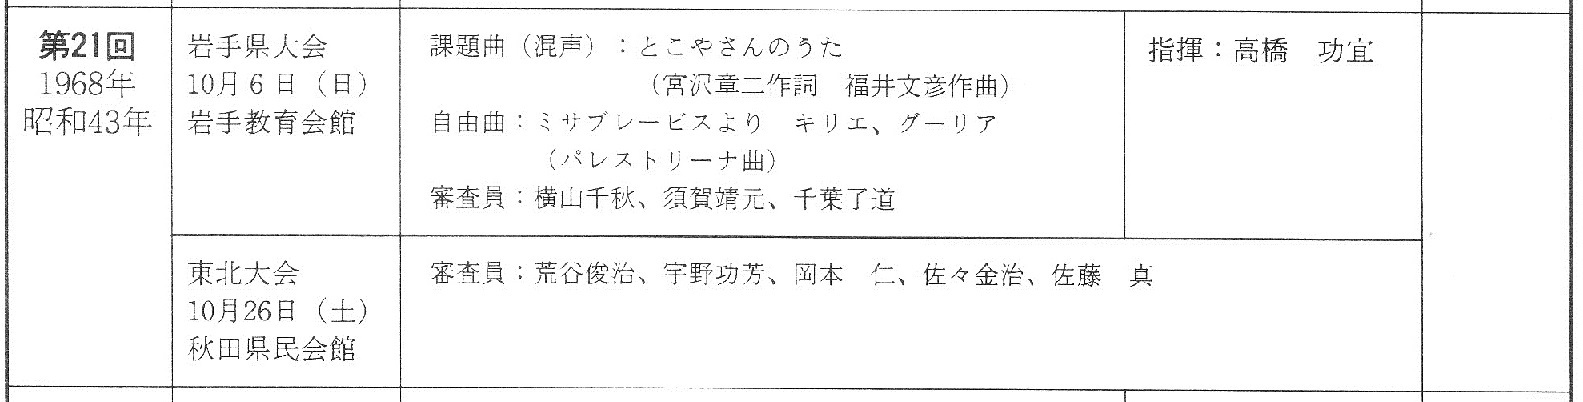 第21回
1968年
昭和43年
岩手県大会
10月6日（日）
岩手教育会館
課題曲（混声）：とこやさんのうた
（宮沢章二作詞　福井文彦作曲）
自由曲：ミサブレービスより　キリエ、グーリア
（パレストリーナ曲）
審査員：横山千秋、須賀靖元、千葉了道
指揮：高橋　功宜
東北大会
10月26日（土）
秋田県民会館
審査員：荒谷俊治、宇野功芳、岡本　仁、佐々金治、佐藤　真